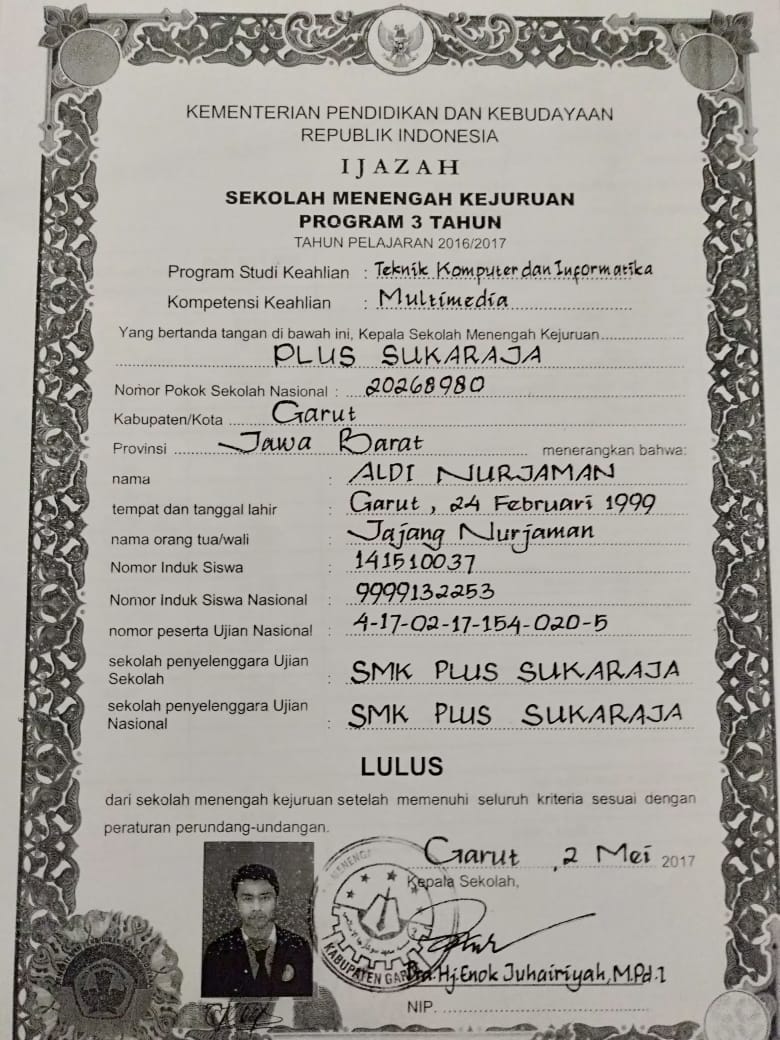 KEMENTERIAN PENDIDIKAN DAN KEBUDAYAAN
REPUBLIK INDONESIA
IJAZAH
SEKOLAH MENENGAH KEJURUAN
PROGRAM 3 TAHUN
TAHUN PELAJARAN 2016/2017
Program Studi Keahlian : Teknik Komputer dan Informatika
Kompetensi Keahlian : Multimedia
Yang bertanda tangan di bawah ini, Kepala Sekolah Menengah Kejuruan
PLUS SUKARAJA
Nomor Pokok Sekolah Nasional : 20268980
Kabupaten/Kota Garut
Provinsi Jawa Barat menerangkan bahwa:
nama : ALDI NURJAMAN
tempat dan tanggal lahir : Garut, 24 Februari 1999
nama orang tua/wali : Jajang Nurjaman
Nomor Induk Siswa : 141510037
Nomor Induk Siswa Nasional : 9999132253
nomor peserta Ujian Nasional : 4-17-02-17-154-020-5
sekolah penyelenggara Ujian
Sekolah : SMK PLUS SUKARAJA
sekolah penyelenggara Ujian
Nasional : SMK PLUS SUKARAJA
LULUS
dari sekolah menengah kejuruan setelah memenuhi seluruh kriteria sesuai dengan
peraturan perundang-undangan.
Garut, 2 Mei 2017
Kepala Sekolah,
KABUPATEN
Dra. Hj. Enok Juhairiyah, M.Pd.I
NIP.